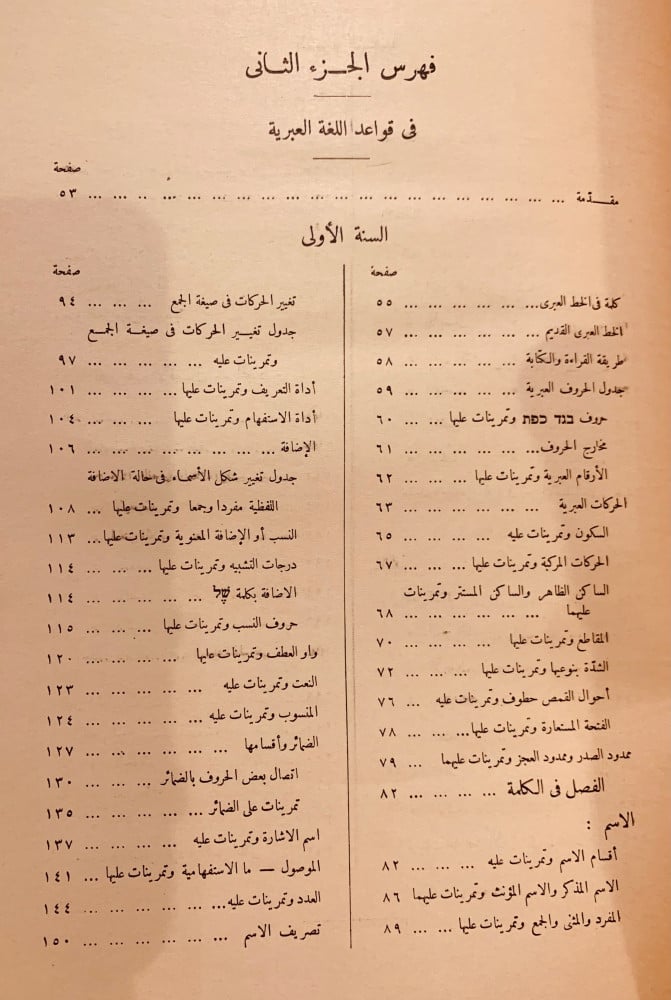 فهرس الجزء الثانى
فى قواعد اللغة العبرية
صفحة
مقدّمة ... ... ... ... ... ... ... ... ... ... ... ... ... ... ... ... ... .. ... ... ٥٣
السنة الأولى
صفحة
كلمة فى الخط العبرى... ... ... ... ... ... ٥٥
الخط العبرى القديم ... ... ... ... ... ... ٥٧
طريقة القراءة والكتابة ... ... ... ... ... ٥٨
جدول الحروف العبرية ... ... ... ... ... ٥٩
حروف בגד כפת وتمرينات عليها ... ... ... ٦٠
مخارج الحروف... ... ... ... ... ... ... ٦١
الأرقام العبرية وتمرينات عليها ... ... ... ٦٢
الحركات العبرية ... ... ... ... ... ... ٦٣
السكون وتمرينات عليه ... ... ... ... ... ٦٥
الحركات المركبة وتمرينات عليها ... ... ... ٦٧
الساكن الظاهر والساكن المستتر وتمرينات
عليهما ... ... ... ... ... ... ٦٨
المقاطع وتمرينات عليها ... ... ... ... ٧٠
الشدّة بنوعيها وتمرينات عليها ... ... ... ٧٢
أحوال القمص حطوف وتمرينات عليه ... ٧٦
الفتحة المستعارة وتمرينات عليها... ... ... ٧٨
ممدود الصدر وممدود العجز وتمرينات عليهما ... ٧٩
الفصل فى الكلمة ... ... ... ... ٨٢
الاسم :
أقسام الاسم وتمرينات عليه ... ... ... ٨٢
الاسم المذكر والاسم المؤنث وتمرينات عليهما ٨٦
المفرد والمثنى والجمع وتمرينات عليها ... ... ٨٩
صفحة
تغيير الحركات فى صيغة الجمع ... ... ... ٩٤
جدول تغيير الحركات فى صيغة الجمع
وتمرينات عليه ... ... ... ... ... ٩٧
أداة التعريف وتمرينات عليها... ... ... ... ١٠١
أداة الاستفهام وتمرينات عليها ... ... ... ١٠٤
الإضافة ... ... ... ... ... ... ... ... ١٠٦
جدول تغيير شكل الأسماء فى حالة الاضافة
اللفظية مفردا وجمعا وتمرينات عليها ... ١٠٨
النسب أو الإضافة المعنوية وتمرينات عليها... ١١٣
درجات التشبيه وتمرينات عليها ... ... ... ١١٤
الاضافة بكلمة שֶׁל ... ... ... ... ... ١١٤
حروف النسب وتمرينات عليها ... ... ... ١١٥
واو العطف وتمرينات عليها ... ... ... ... ١٢٠
النعت وتمرينات عليه ... ... ... ... ... ١٢٣
المنسوب وتمرينات عليه ... ... ... ... ... ١٢٤
الضمائر وأقسامها ... ... ... ... ... ... ١٢٧
اتصال بعض الحروف بالضمائر ... ... ... ١٣٠
تمرينات على الضمائر ... ... ... ... ... ١٣٥
اسم الاشارة وتمرينات عليه ... ... ... ... ١٣٧
الموصول — ما الاستفهامية وتمرينات عليها ... ١٤١
العدد وتمرينات عليه... ... ... ... ... ... ١٤٤
تصريف الاسم ... ... ... ... ... ... ١٥٠